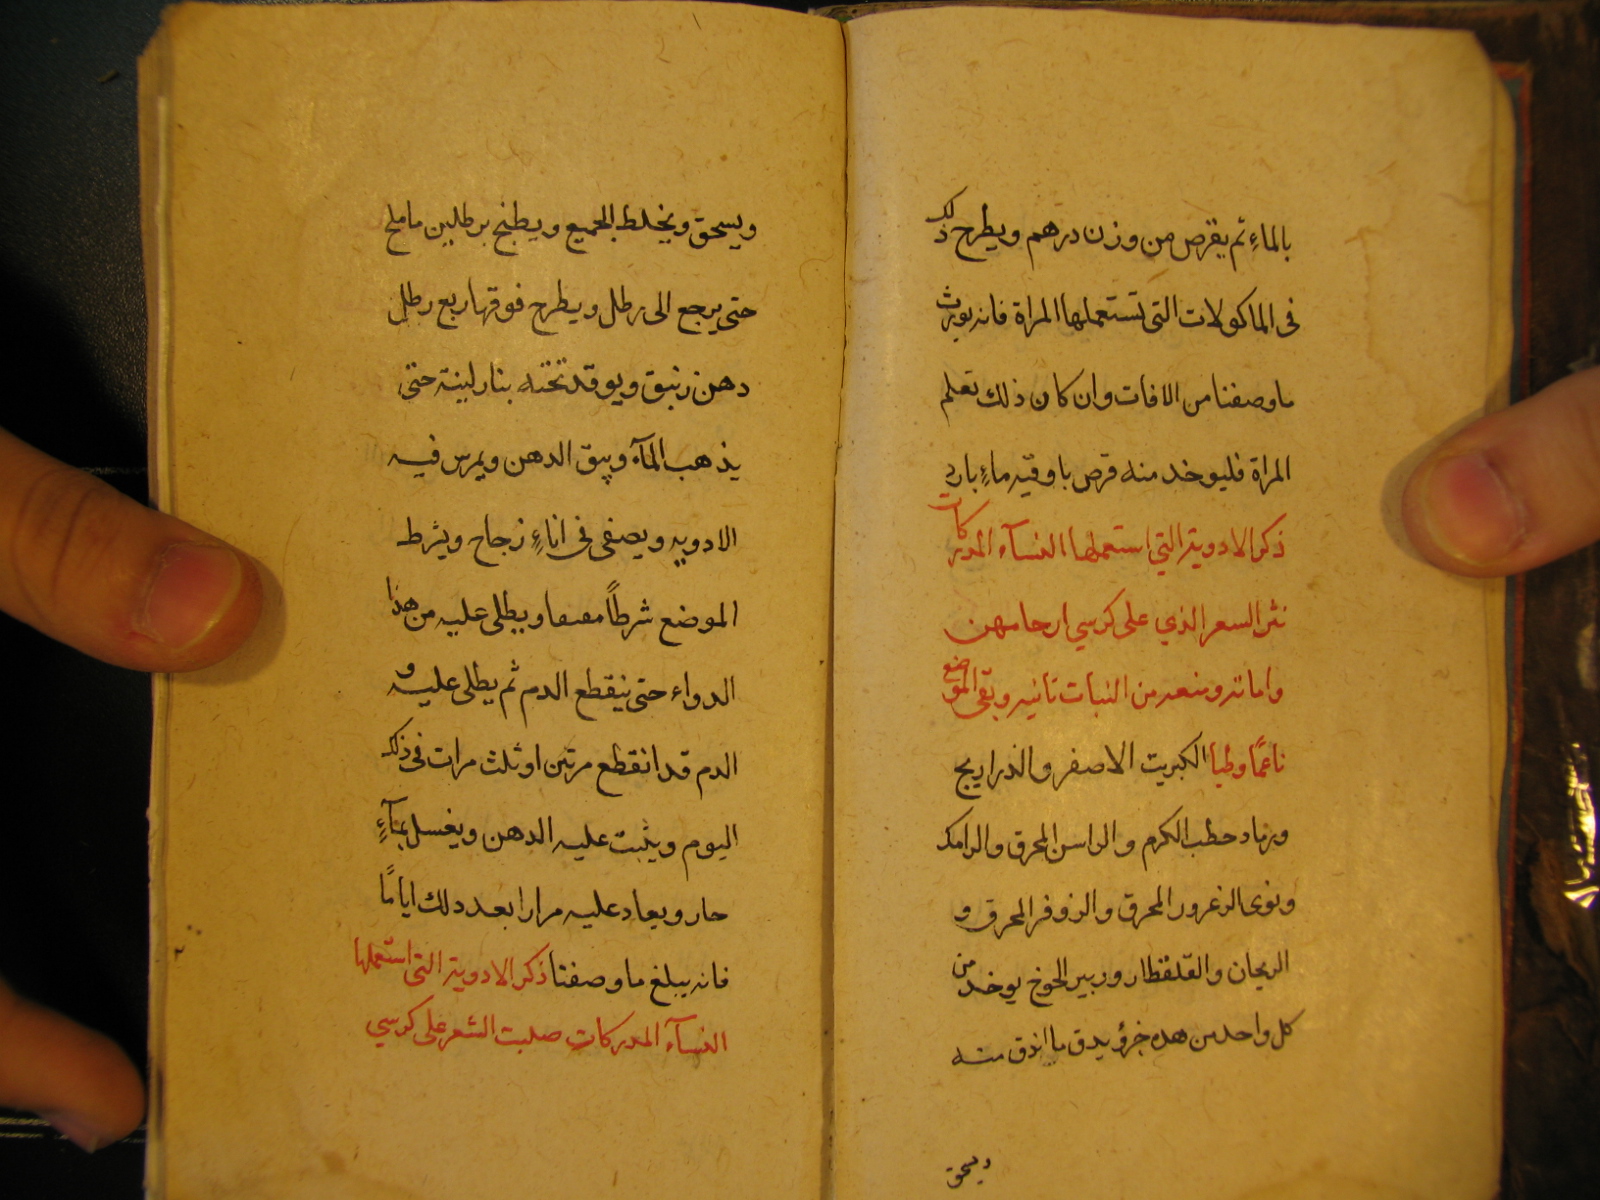 بالماء ثم يقرص من وزن درهم ويطرح ذلك
فى الماكولات التى تستعملها المراة فانه يورث
ما وصفنا من الافات وان كان ذلك تعلم
المراة فليوخد منه قرص باوقيه ماء بارد
ذكر الادوية التي استعملها النسآء المدركات
نثر السعر الذي على كرسي ارحامهن
واماتة ومنعه من النبات ثانيه وبقى الموضع
ناعمًا وطيا الكبريت الاصفر والذراريح
ورماد حطب الكرم والراسن المحرق والرامك
ونوى الزعرور المحرق والزوفر المحرق و
الريحان والقلقطار وربير الخوخ يوخد من
كل واحد من هده جزؤ يدق ما اندق منه
ويسحق
ويسحق ويخلط الجميع ويطبخ برطلين ما ملح
حتى يرجع الى رطل ويطرح فوقها ربع رطل
دهن زنبق ويوقد تحته بنار لينة حتى
يذهب المآء ويبق الدهن ويمرس فيه
الادويه ويصفى فى اناءٍ زجاج ويشرط
الموضع شرطاً ويطلى عليه من هذا
الدواء حتى ينقطع الدم ثم يطلى عليه و
الدم قد انقطع مرتين او ثلث مرات فى ذلك
اليوم ويثبت عليه الدهن ويغسل بمآءٍ
حار ويعاد عليه مرارا بعد دلك ايامًا
فانه يبلغ ما وصفنا ذكر الادوية التى استعملها
النسآء المدركات صلبت الشعر على كرسي